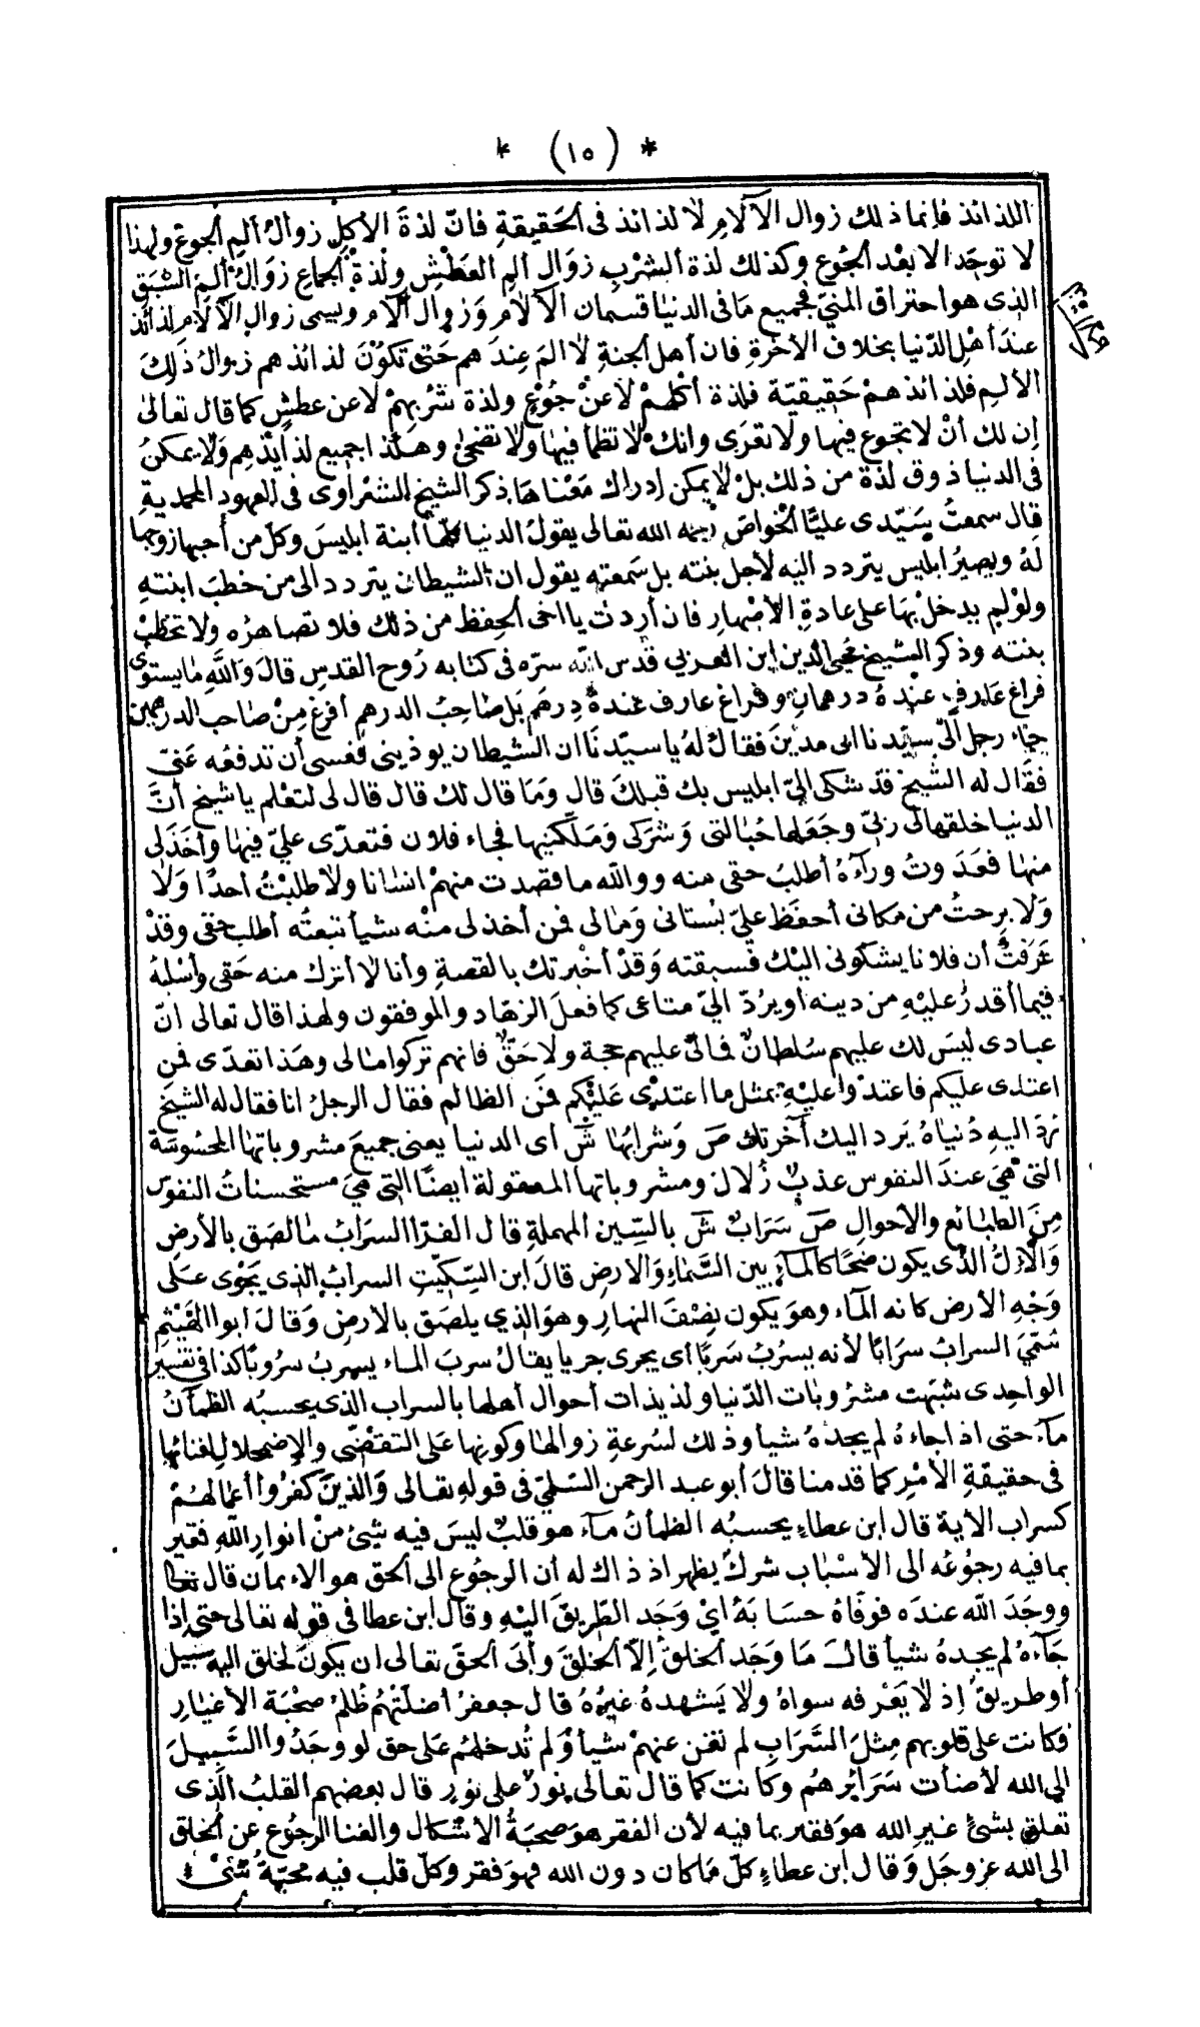 * (١٥) *
اللذائذ فإنما ذلك زوال الآلامِ لا لذائذ فى الحَقيقةِ فانّ لذةَ الأكلِ زوالُ أليمِ الجوعِ ولهذا
لا توجَد الا بعْد الجُوع وكذلك لذة الشرْبِ زوَال ألمِ العَطَشِ ولذةُ الجماعِ زوَالُ ألمَ الشبَق
الذى هو احتراق المنىّ فجميع مَا فى الدنيا قسمان الآلامُ وَزوال الآلام ويسمى زوال الآلام لذائذ
عندَ أهْلِ الدّنيا بخلاف الآخرةِ فان أهل الجنةِ لا المَ عِندَهم حَتى تكوْنَ لذائذهم زوالُ ذَلِكَ
الأليم فلذائذهمْ حَقيقيّة فلذة أكلهمْ لا عنْ جُوعٍ ولذة شرْبهِمْ لا عن عطشٍ كما قال تعالى
إن لك أنْ لا تجوع فيها ولا تعْرَى وانك لا تظمأ فيها ولا تضحى وهكذا جميع لذايذهم وَلا يمكنُ
فى الدنيا ذوق لذة من ذلك بلْ لا يمكن إدراك مَعْناهَا ذكر الشيخ الشعْراوى فى العهود المحمديةِ
قال سمعتُ سَيّدى عليًا الخواصَ رحمه الله تعالى يقولُ الدنيا كلهَا ابنة ابليسَ وكلّ من أحبها زوجها
لهُ ويصيرُ ابليس يتردد اليه لأجل بنته بل سَمعته يقول ان الشيطان يتردد الى من خطبَ ابنتهِ
ولوْ لم يدخلْ بهَا على عادةِ الأصْهارِ فان أردتْ يا اخى الحِفظ من ذلك فلا تصاهرُه ولا تخطبْ
بنته وذكر الشيخ محيى الدين ابن العربي قدس الله سرّه فى كتابه رُوح القدسِ قالَ وَاللهِ مَا يستوى
فراغ عَارفٍ عنْدهُ درهمانِ وفراغ عارف عندهُ دِرهَم بَل صَاحِبُ الدرهم أفرغ مِنْ صَاحب الدرهمين
جَاء رجل الىّ سيّدنا ابى مدْينَ فقالَ لهُ يا سيّدنَا ان الشيطان يوذينى فعسى أن تدفعُه عَنىّ
فقَال له الشيخ قدْ شكى الىّ ابليس بك قبلكَ قال وَمَا قال لك قال قال لى لتعْلم يا شيخ أنَّ
الدنيا خلقهَا لى ربىّ وجَعَلها حُبَالتى وَشرَكى وَمَلكنيها فجاء فلان فتعدّى عليّ فيهَا وأخذَ لى
منهَا فعَدَوتُ ورآءهُ أطلبُ حقى منه ووالله ما قصدت منهمْ انسَانا ولا طلبْتُ أحدًا وَلا
وَلا برِحتُ من مكانى أحفَظ عليّ بُستانى وَمَا لى فمن أخذ لى منْه شيأ تبعتُه أطلب حقى وقدْ
عَرَفتُ أن فلانا يشكونى اليْك فسبقته وَقدْ أخْبرتك بالقصةِ وأنا لا أترك منه حَقى وأسْلبهُ
فيما أقدرُ عليْهِ من دينه أو يرُدّ اليّ متاعى كما فعلَ الزهّاد والموفقون ولهذا قال تعالى انّ
عبادى ليسَ لك عليهم سُلطانٌ فما لىّ عليهم حجة ولا حَقٌ فانهم تركوا ما لى وهَذا تعدّى فمن
اعتدى عليكم فاعتدْوا عليْهِ بمثل ما اعتدْى عَليْكم فمَن الظالم فقال الرجلُ انا فقال له الشيخَ
رُدّ اليهِ دُنياهُ يَرد اليك آخرتك صَ وَشرابُها شْ أى الدنيا يعنى جميعَ مشروباتها المحسُوسَة
التى هيَ عندَ النفوس عذبٌ زُلال ومشروباتها المعقولة ايضًا التى هيَ مستحسناتُ النفوس
مِنَ الطبَائع والاحوالِ صَ سَرَابٌ شَ بالسّين المهملةِ قال الفرّا السرَابُ مَا لصَق بالأرضِ
وَالآلُ الذى يكون ضحًا كالمآءِ بين السَّمَاءِ وَالارضِ قالَ ابن السِّكّيتِ السرابُ الذى يَجْرى عَلى
وَجْهِ الأرض كانه المآء وهوَ يكون نِصْفَ النهارِ وهوَ الذي يلصَق بالارضِ وَقالَ ابو الهَيْثمِ
سُمّيَ السرابُ سرَابًا لأنه يسرُبُ سَربًا أى يجرى جريا يقالُ سربَ الماء يسربُ سرُوبًا كذا فى تفسير
الواحِدى شبّهت مشرُوبَات الدّنيا ولذيذات أحوال أهلها بالسراب الذى يحسبُه الظمآنُ
مآءً حتى اذا جاءهُ لم يجدْهُ شيأ وذلك لسُرعةِ زوالهَا وكونها عَلى التقضّى والإضمحلال لِفنائها
فى حقيقةِ الأمْرِ كما قدمنا قالَ أبو عبد الرحمن السّلميّ فى قولهِ تعالى وَالذِينَ كفرُوا أعمالهُمْ
كسراب الآية قال ابن عطاءٍ يحسبُه الظمأنُ مآء هو قلبٌ ليسَ فيه شيئ منْ أنوارِ اللهِ فقير
بما فيه رجُوعُه الى الأسْبَاب شركٌ يظهر اذ ذاك له أن الرجُوع الى الحق هو الايمان قال تعالى
ووجَدَ الله عندَه فوفّاهُ حسَابَهُ أيْ وَجَد الطّرِيقَ اليْهِ وقالَ ابن عطا فى قوله تعالى حتى إذا
جَآءهُ لم يجدهُ شيأ قالَ مَا وَجَد الخلقُ إلا الخَلقَ وأبَى الحقَ تعالى ان يكونَ لخلق اليه سَبيل
أو طريقٌ إذ لا يَعْرفه سواهُ ولا يَشهدهُ غيرُهُ قال جعفرُ أضلتْهُم ظُلمُ صحْبَة الأغيَارِ
فكانت على قلوبهم مِثلَ السَّرَابِ لم تغن عنهمْ شيأ وَلم تُدخلهُم عَلى حق لو وجَدُوا السَّبيلَ
الى الله لأضأت سَرَائرهُم وكَانت كما قال تعالى نورٌ على نورٍ قال بعضهم القلبُ الذى
تعلق بشئ غيرِ الله هوَ فقير بما فيه لأن الفقر هوَ صحبَةُ الاشكال والغنا الرجُوع عن الخلق
الى الله عزوجَل وَقال ابن عطاءٍ كلّ مَا كان دون الله فهوَ فقر وكلّ قلب فيه محبّةُ شئْ